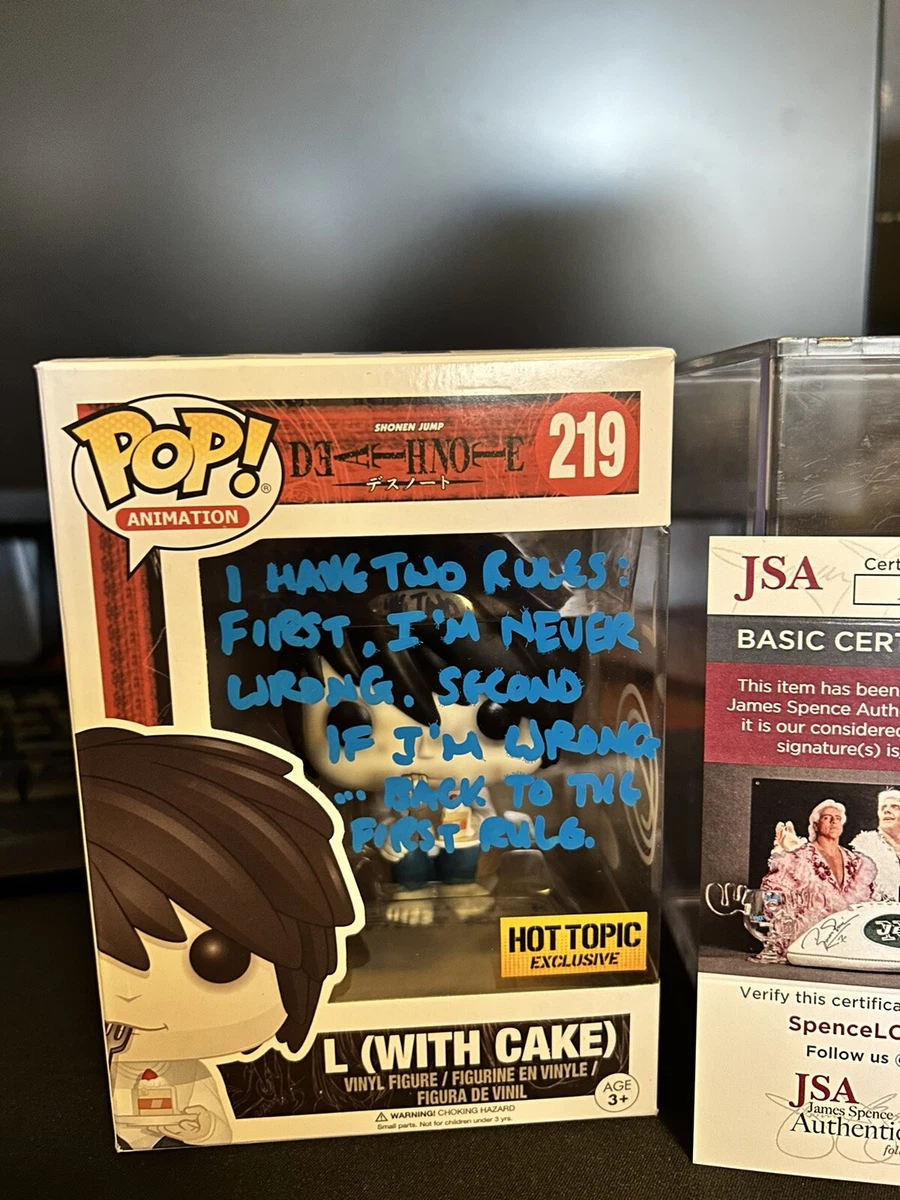 POP!
ANIMATION
SHONEN JUMP
DEATH NOTE
デスノート
219
I HAVE TWO RULES:
FIRST, I'M NEVER
WRONG. SECOND
IF I'M WRONG
... BACK TO THE
FIRST RULE.
HOT TOPIC
EXCLUSIVE
L (WITH CAKE)
VINYL FIGURE / FIGURINE EN VINYLE /
FIGURA DE VINIL
AGE
3+
WARNING! CHOKING HAZARD
Small parts. Not for children under 3 yrs.
JSA
Cert
BASIC CERT
This item has been
James Spence Auth
it is our considered
signature(s) is
Verify this certifica
SpenceLO
Follow us @
JSA
James Spence
Authentic